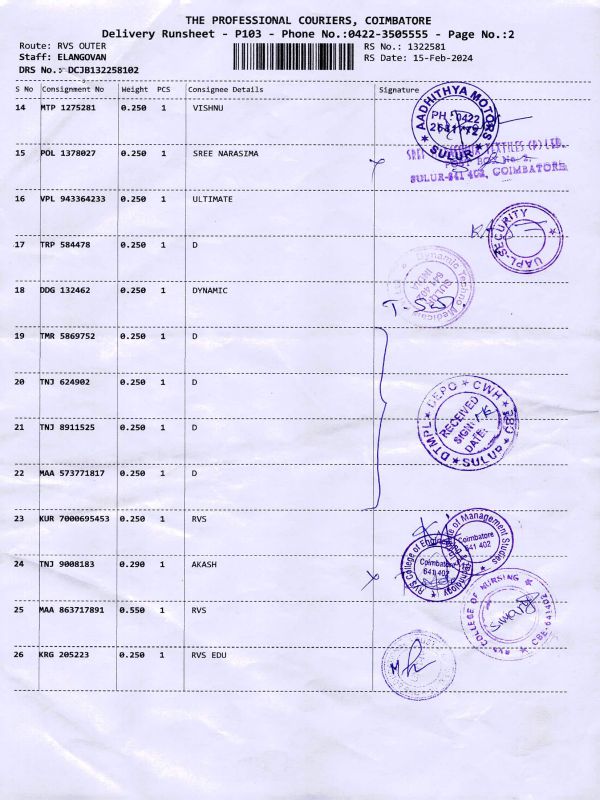 THE PROFESSIONAL COURIERS, COIMBATORE
Delivery Runsheet - P103 - Phone No.:0422-3505555 - Page No.:2
Route: RVS OUTER
RS No.: 1322581
Staff: ELANGOVAN
RS Date: 15-Feb-2024
DRS No.: DCJB132258102
S No Consignment No Weight PCS Consignee Details Signature
14 MTP 1275281 0.250 1 VISHNU
AADHITHYA MOTORS
PH : 0422
SULUR
15 POL 1378027 0.250 1 SREE NARASIMA
POST BOX No. 2,
SULUR-641 402, COIMBATORE
16 VPL 943364233 0.250 1 ULTIMATE
UAPL-SECURITY
17 TRP 584478 0.250 1 D
18 DDG 132462 0.250 1 DYNAMIC
Dynamic Techno Medicals
SULUR
641 402
INDIA
19 TMR 5869752 0.250 1 D
20 TNJ 624902 0.250 1 D
DTMPL DEPO CWH
RECEIVED
SIGN:
DATE:
SULUR
21 TNJ 8911525 0.250 1 D
22 MAA 573771817 0.250 1 D
23 KUR 7000695453 0.250 1 RVS
of Management Studies
Coimbatore
641 402
24 TNJ 9008183 0.290 1 AKASH
RVS College of Engineering & Technology
Coimbatore
641 402
25 MAA 863717891 0.550 1 RVS
RVS COLLEGE OF NURSING
CBE-641402
26 KRG 205223 0.250 1 RVS EDU